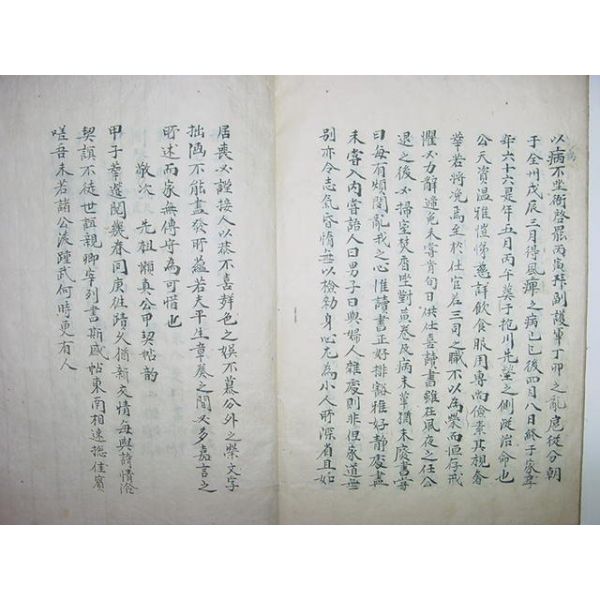 以病不坐衙啓罷丙寅拜副護軍丁卯之亂扈從分朝
于全州戊辰三月得風痺之病己巳後四月八日終于家享
年六十六是年五月丙午葬于抱川先塋之側從治命也
公天資溫雅愷悌慈詳飲食服用專尚儉素其視奢
華若將浼焉至於仕官右三司之職不以為榮而恒存戒
懼必力辭逡免未嘗肯旬日供仕喜讀書雖在夙夜之任公
退之後必掃室焚香坐對黃卷及病未革猶未廢書嘗
曰每有煩鬧亂我之心惟讀書正好排豁雅好靜處盡
未嘗入內嘗語人曰男子日與婦人雜處則非但家道無
別亦令志氣昏惰無以檢勅身心尤為小人所深省且如
居喪必謹接人以恭不喜聲色之娛不慕分外之榮文字
拙澁不能盡發所蘊若夫平生章奏之間必多嘉言之
可述而家無傳守為可惜也
敬次 先祖懶真公甲契帖韵
甲子華選閱幾春同庚往蹟久猶新交情每與詩情洽
契誼不徒世誼親卿宰列書斯盛帖東南相逺摠佳賓
嗟吾未若諸公後踵武何時更有人